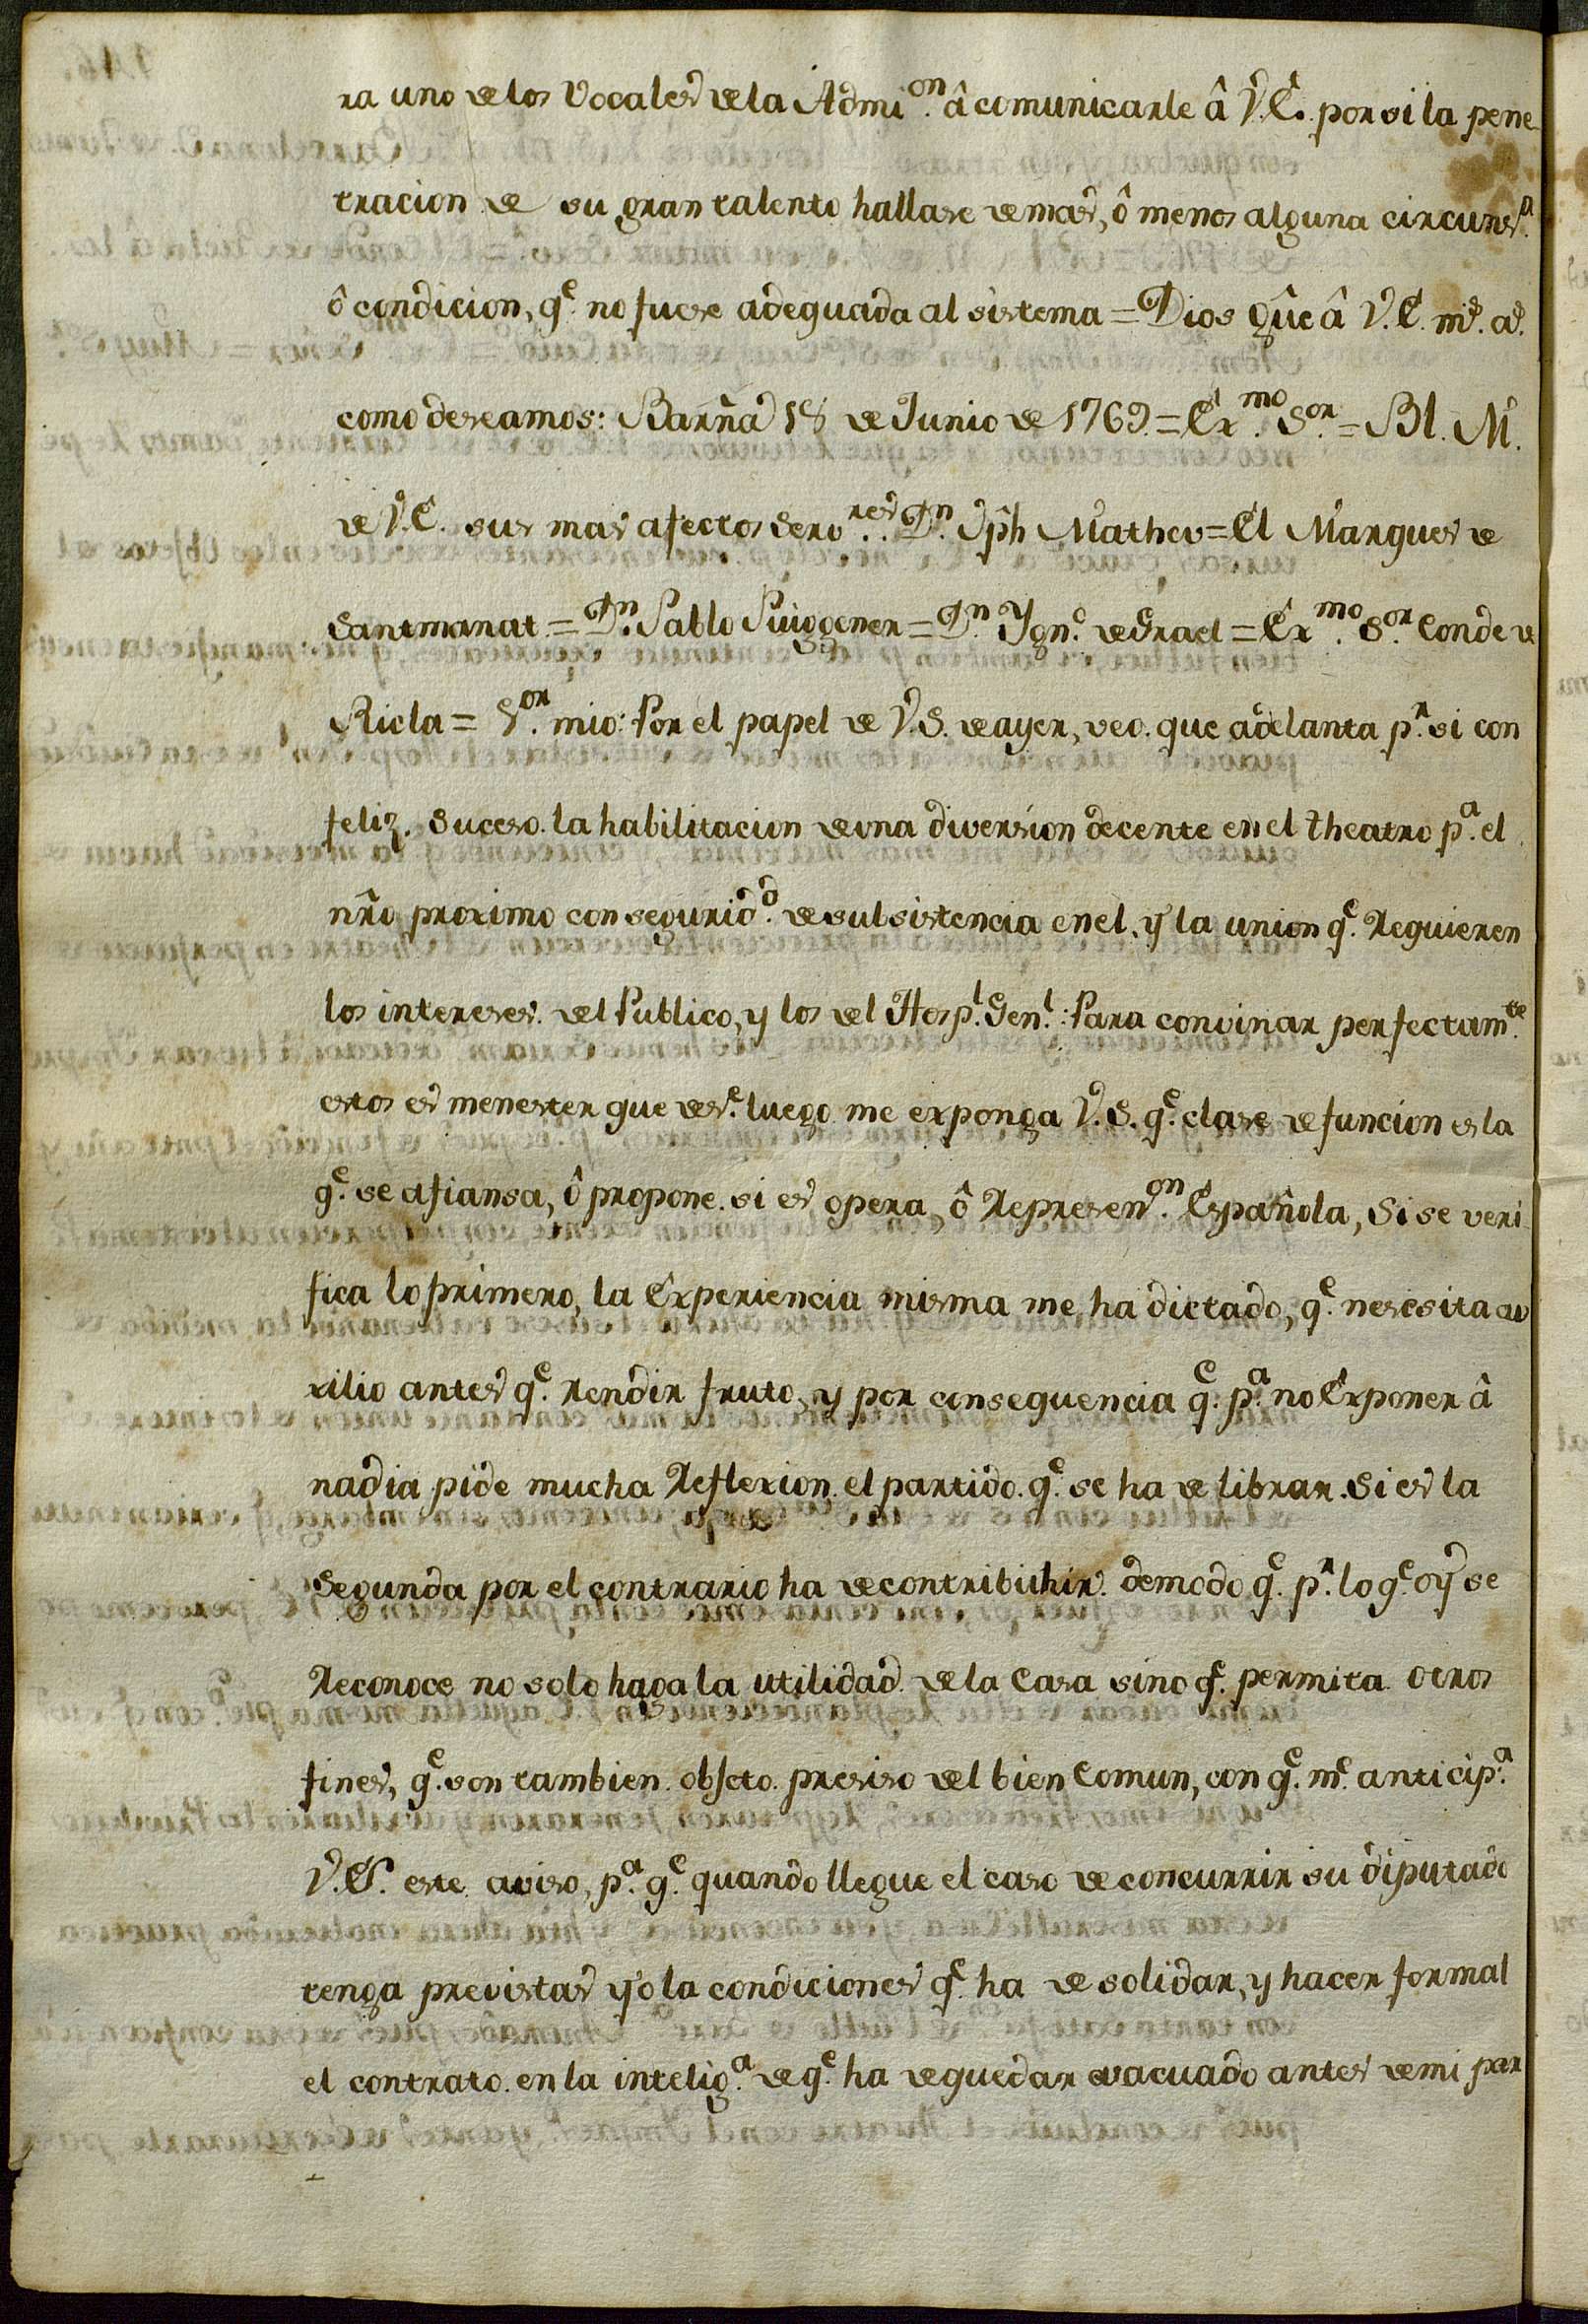 ra uno de los Vocales de la Admi.on â comunicarle â V.E. por si la pene
tracion de su gran talento hallase de mas, ô menos alguna circuns.a
ô condicion, q.e no fuese adequada al sistema = Dios gûe â V.E. m.s a.s
como deseamos: Barñа 18 de Junio de 1769. = Ex.mo S.or = Bl. M.
de V.E. sus mas afectos Sero.res D.n Jph Matheo = El Marques de
Santmanat = D.n Pablo Puiggener = D.n Ygn.o de Grael = Ex.mo S.or Conde de
Ricla = S.or mio: Por el papel de V.S. de ayer, veo que adelanta p.r si con
feliz suceso la habilitacion de una diversion decente en el theatro p.a el
nr̃o proximo con segurid.d de subsistencia en el, y la union q.e Requieren
los intereses del Publico, y los del Hosp.l Gen.l: Para convinar perfectam.te
estos es menester que des.e luego me exponga V.S. q.e clase de funcion es la
q.e se afiansa, ô propone si es opera, ô Represen.on Española, Si se veri
fica lo primero, la Experiencia misma me ha dictado, q.e nesesita au
xilio antes q.e rendir fruto, y por consequencia q.e p.a no Exponer â
nadia pide mucha Reflexion el partido q.e se ha de librar. Si es la
Segunda por el contrario ha de contribuhir de modo q.e p.r lo q.e oy se
Reconoce no solo haga la utilidad de la Casa sino q.e permita otros
fines, q.e son tambien objeto presiso del bien Comun, con q.e m.e anticip.a
V.S. este aviso, p.a q.e quando llegue el caso de concurrir su diputado
tenga previstas yo la condiciones q.e ha de solidar, y hacer formal
el contrato en la intelig.a de q.e ha de quedar evacuado antes de mi par